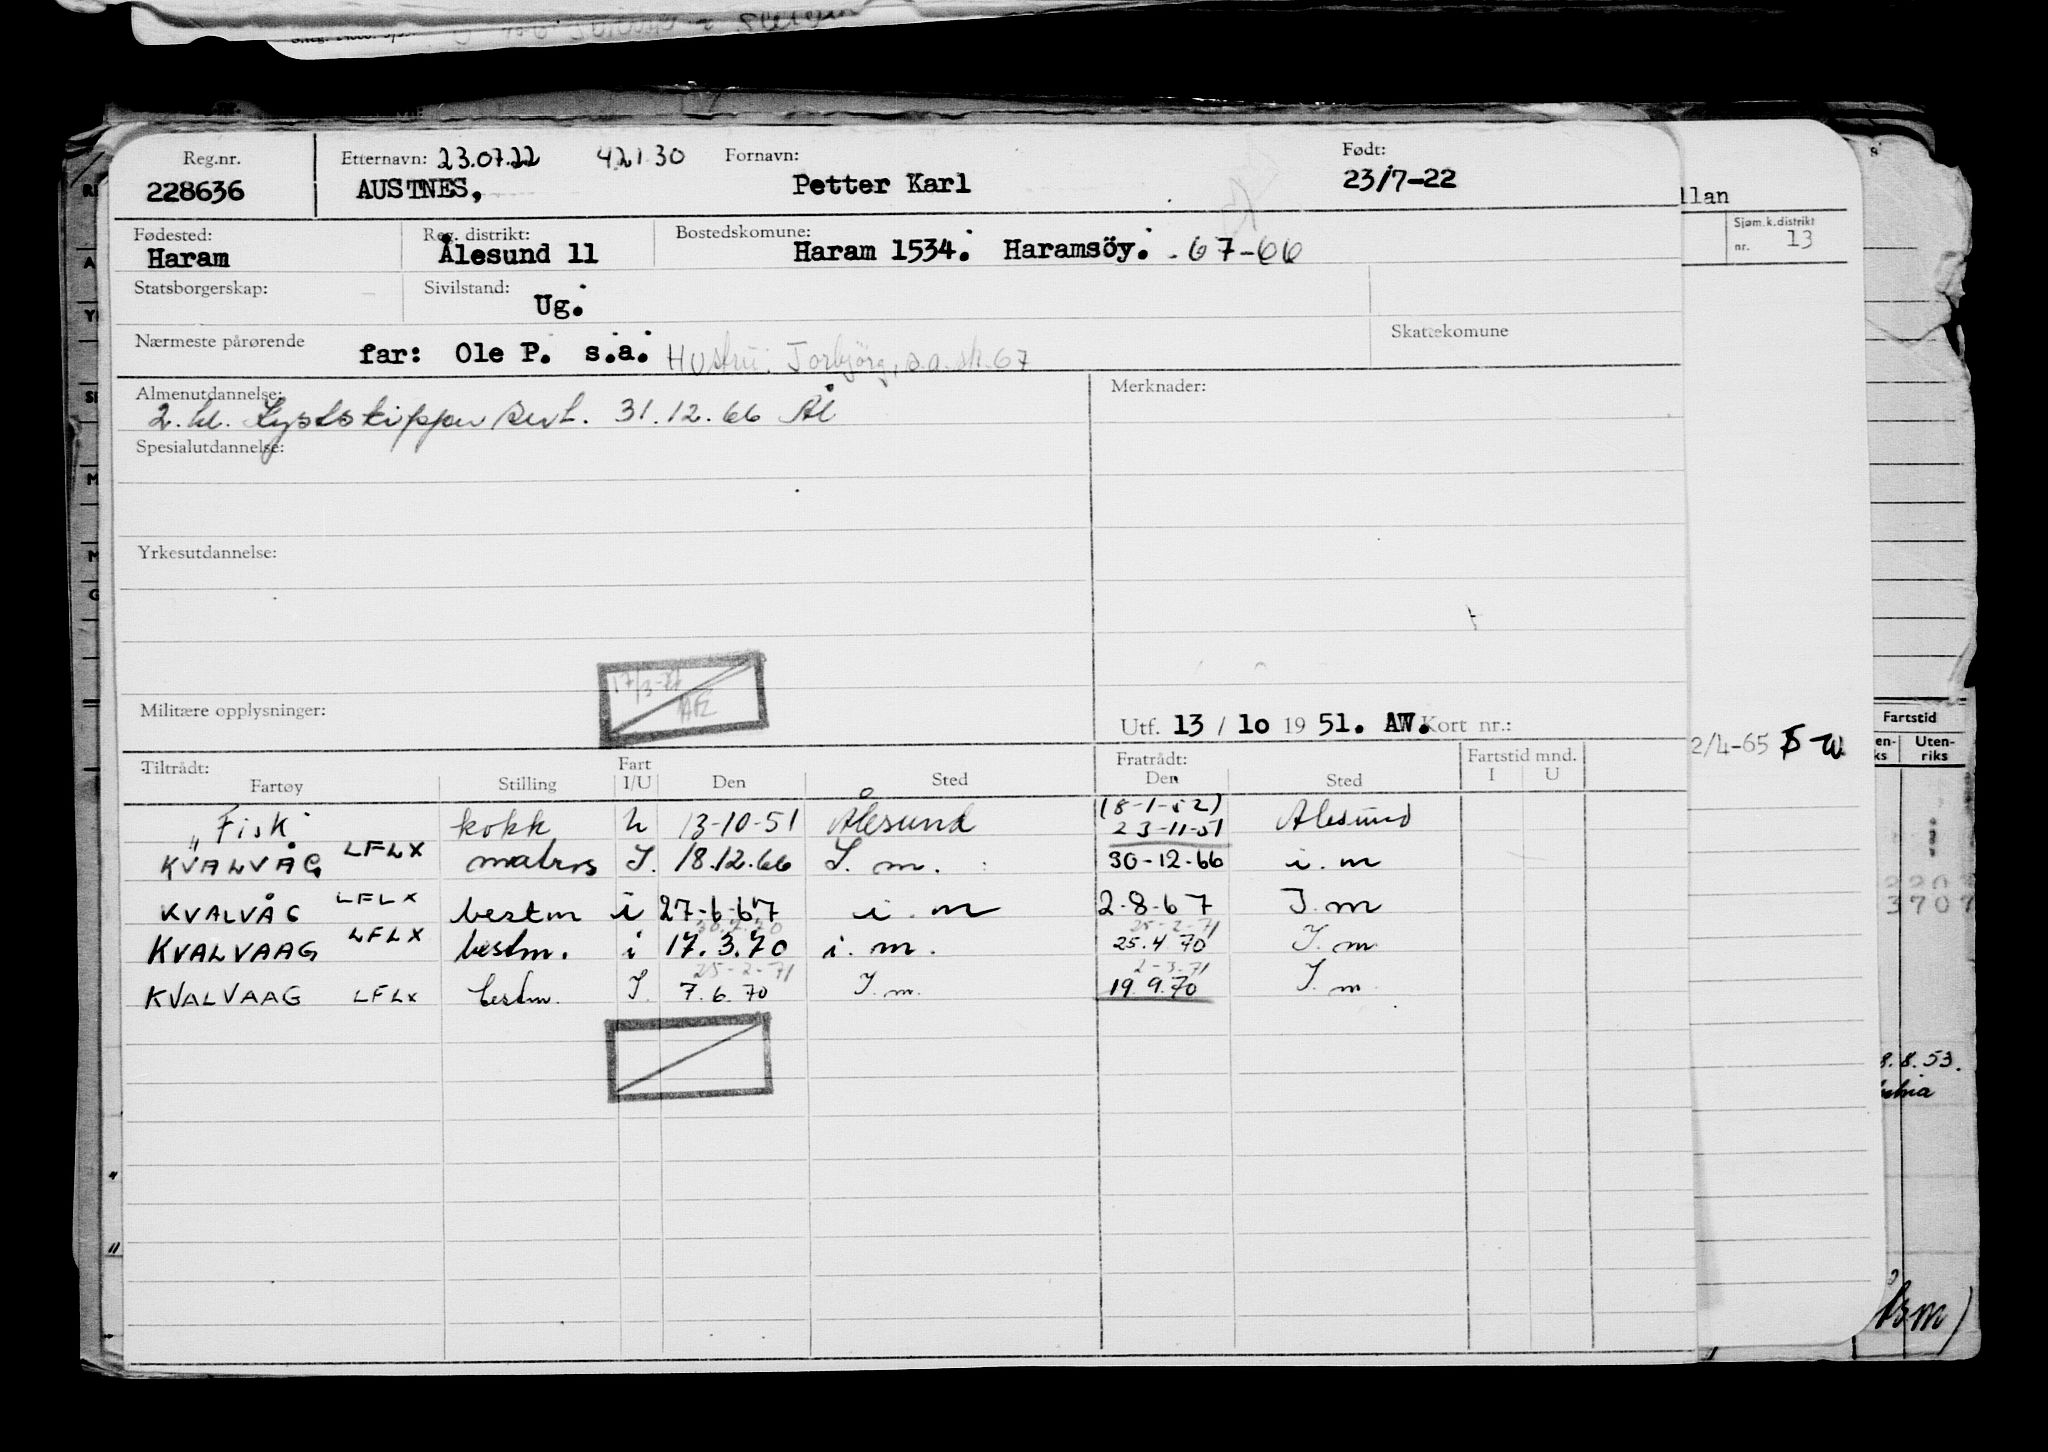 Reg.nr. Etternavn: 23.07.22 421.30 Fornavn: Født:
228636 AUSTNES, Petter Karl 23/7-22
Fødested: Reg. distrikt: Bostedskomune:
Haram Ålesund 11 Haram 1534. Haramsöy. 67-66
Statsborgerskap: Sivilstand:
Ug.
Nærmeste pårørende Skattekomune
far: Ole P. s.a. Hustru: Torbjörg, s.a. sk. 67
Almenutdannelse: Merknader:
2. kl. Kystskippersert. 31.12.66 Ål
Spesialutdannelse:
Yrkesutdannelse:
17/3-71
Militære opplysninger:
Utf. 13 / 10 19 51. AW. Kort nr.:
Tiltrådt: Fart Fratrådt: Fartstid mnd.
Fartøy Stilling I/U Den Sted Den Sted I U
(8-1-52)
"Fisk" kokk U 13-10-51 Ålesund 23-11-51 Ålesund
KVALVÅG LFLX matros I. 18.12.66 I. m. 30-12-66 i. m
KVALVÅG LFLX bestm i 27-6-67 i. m 2-8-67 I. m
30.7.70 25-2-71
KVALVAAG LFLX bestm. i 17.3.70 i. m. 25.4 70 I. m.
25-2-71 2-3.71
KVALVAAG LFLX bestm. I. 7.6.70 I. m. 19.9.70 I. m.
llan
Sjøm.k.distrikt
nr. 13
2/4-65
Fartstid
Uten-
riks
3707
8.8.53.